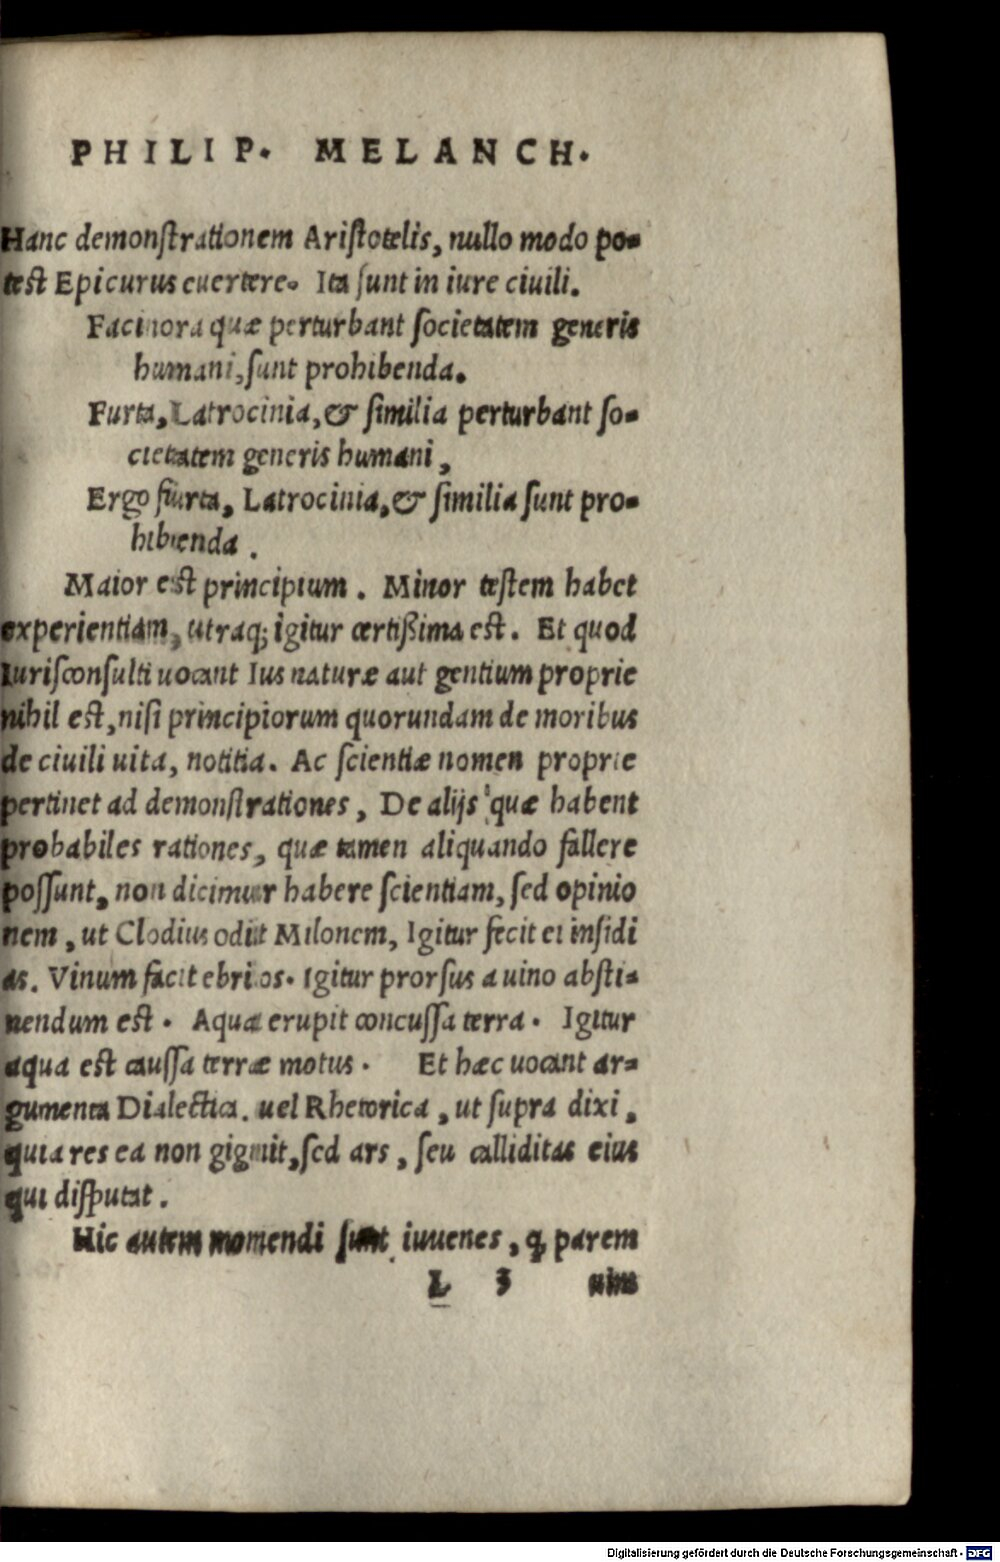 PHILIP. MELANCH.
Hanc demonſtrationem Ariſtotelis, nullo modo po-
teſt Epicurus euertere. Ita ſunt in iure ciuili.
Facinora quæ perturbant ſocietatem generis
humani, ſunt prohibenda.
Furta, Latrocinia, & ſimilia perturbant ſo-
cietatem generis humani,
Ergo furta, Latrocinia, & ſimilia ſunt pro-
hibenda.
Maior eſt principium. Minor teſtem habet
experientiam, utraq; igitur certißima eſt. Et quod
Iuriſconſulti uocant Ius naturæ aut gentium proprie
nihil eſt, niſi principiorum quorundam de moribus
de ciuili uita, notitia. Ac ſcientiæ nomen proprie
pertinet ad demonſtrationes, De alijs quæ habent
probabiles rationes, quæ tamen aliquando fallere
poſſunt, non dicimur habere ſcientiam, ſed opinio
nem, ut Clodius odit Milonem, Igitur fecit ei inſidi
as. Vinum facit ebrios. Igitur prorſus a uino abſti-
nendum eſt. Aqua erupit concuſſa terra. Igitur
aqua eſt cauſſa terræ motus. Et hæc uocant ar-
gumenta Dialectica. uel Rhetorica, ut ſupra dixi,
quia res ea non gignit, ſed ars, ſeu calliditas eius
qui diſputat.
Hic autem momendi ſunt iuuenes, q̃ parem
L 3 uim
Digitalisierung gefördert durch die Deutsche Forschungsgemeinschaft - DFG